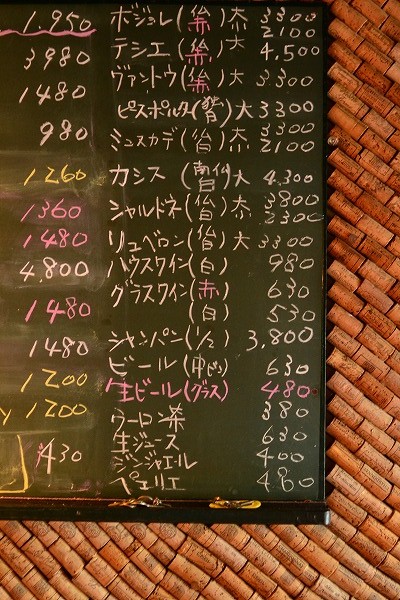 1.950
3980
1480
980
1260
1360
1480
4,800
1480
1480
1200
1200
430
ボジョレ(仏赤) 大小 3300 2100
テシエ(仏赤) 大 4,500
ヴァントウ(仏赤) 大 3.300
ピースポルター(独白) 大 3300
ミュスカデ(仏白) 大小 3300 2100
カシス(南仏白) 大 4.300
シャルドネ(仏白) 大小 3800 2300
リュベロン(仏白) 大 3300
ハウスワイン(白) 980
グラスワイン(赤) 630
(白) 530
シャンパン(1/2) 3,800
ビール(中ビン) 630
生ビール(グラス) 480
ウーロン茶 380
生ジュース 630
ジンジャエール 400
ペェリエ 480